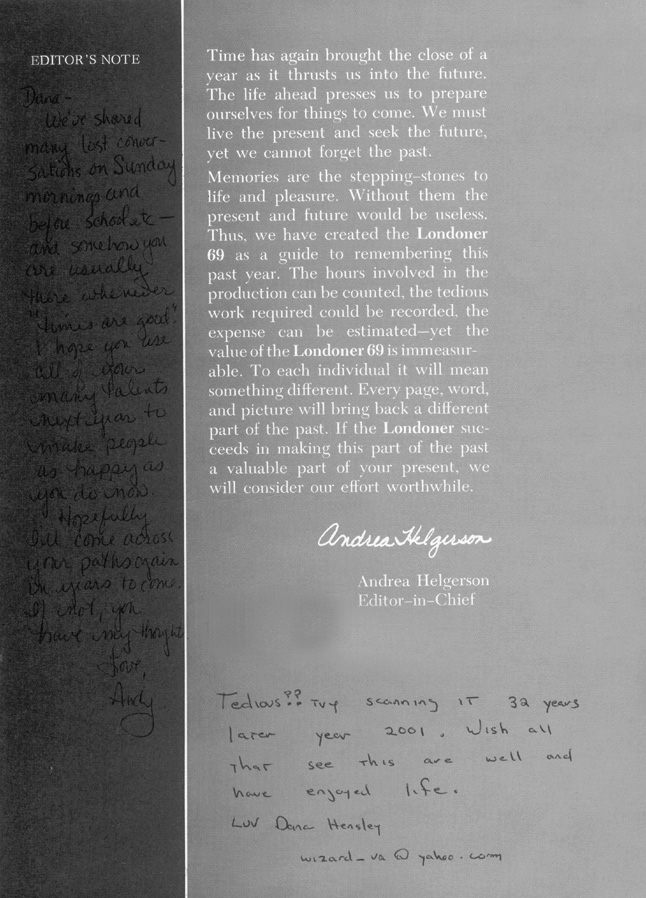 EDITOR'S NOTE
Dana –
We've shared
many lost conver-
sations on Sunday
mornings and
before school etc —
and somehow you
are usually
there whenever
"times are good".
I hope you use
all of your
many talents
next year to
make people
as happy as
you do now.
Hopefully
I'll come across
your paths again
in years to come.
If not, you
have my thought
Love,
Andy
Time has again brought the close of a
year as it thrusts us into the future.
The life ahead presses us to prepare
ourselves for things to come. We must
live the present and seek the future,
yet we cannot forget the past.
Memories are the stepping–stones to
life and pleasure. Without them the
present and future would be useless.
Thus, we have created the Londoner
69 as a guide to remembering this
past year. The hours involved in the
production can be counted, the tedious
work required could be recorded, the
expense can be estimated—yet the
value of the Londoner 69 is immeasur-
able. To each individual it will mean
something different. Every page, word,
and picture will bring back a different
part of the past. If the Londoner suc-
ceeds in making this part of the past
a valuable part of your present, we
will consider our effort worthwhile.
Andrea Helgerson
Andrea Helgerson
Editor–in–Chief
Tedious?? Try scanning it 32 years
later year 2001. Wish all
that see this are well and
have enjoyed life.
Luv Dana Hensley
wizard_va@yahoo.com